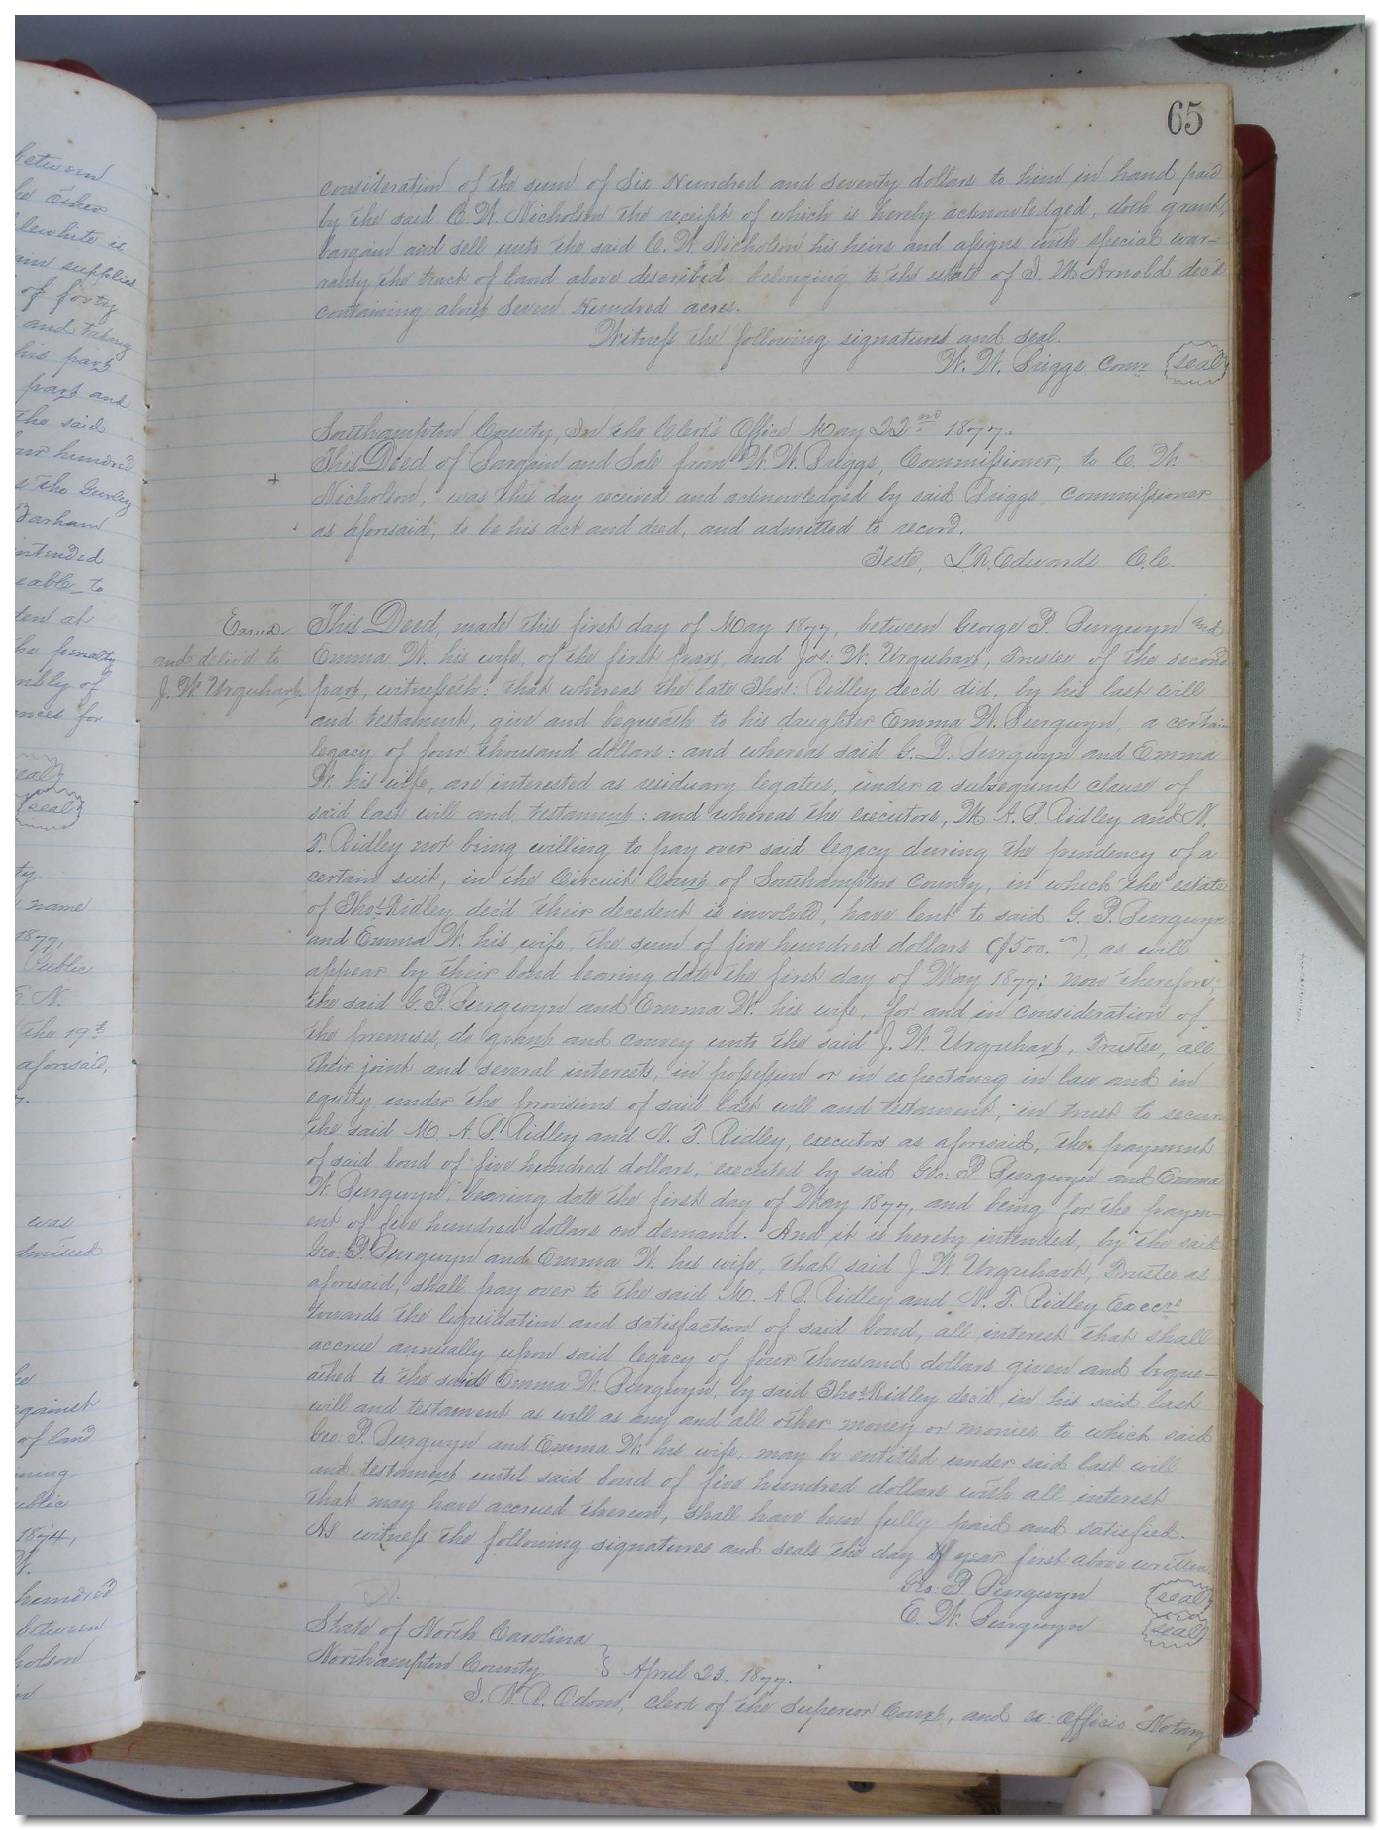 65
consideration of the sum of Six Hundred and seventy dollars to him in hand paid
by the said C. W. Nicholson the receipt of which is hereby acknowledged, doth grant,
bargain and sell unto the said C. W. Nicholson his heirs and assigns with special war-
ranty the tract of land above described belonging to the estate of J. W. Arnold dec'd
containing about Seven Hundred acres.
Witness the following signatures and seal.
W. W. Briggs Comr (seal)
Southampton County, In the Clerk's Office May 22nd 1877.
This Deed of Bargain and Sale from W. W. Briggs, Commissioner, to C. W.
+
Nicholson, was this day received and acknowledged by said Briggs commissioner
as aforesaid, to be his act and deed, and admitted to record.
Teste, L. R. Edwards C.C.
Examd
and deliv'd to
J. W. Urquhart
This Deed, made this first day of May 1877, between George P. Burgwyn and
Emma W. his wife, of the first part, and Jos: W. Urquhart, Trustee of the second
part, witnesseth: that whereas the late Thos: Ridley dec'd did, by his last will
and testament, give and bequeath to his daughter Emma W. Burgwyn, a certain
legacy of four thousand dollars: and whereas said G. P. Burgwyn and Emma
W. his wife, are interested as residuary legatees, under a subsequent clause of
said last will and testament: and whereas the executors, M. A. P. Ridley and N.
T. Ridley not being willing to pay over said legacy during the pendency of a
certain suit, in the Circuit Court of Southampton County, in which the estate
of Thos Ridley dec'd their decedent is involved, have lent to said G. P. Burgwyn
and Emma W. his wife, the sum of five hundred dollars ($500.00), as will
appear by their bond bearing date the first day of May 1877; now therefore,
the said G. P. Burgwyn and Emma W. his wife, for and in consideration of
the premises, do grant and convey unto the said J. W. Urquhart, Trustee, all
their joint and several interests, in possession or in expectancy in law and in
equity under the provisions of said last will and testament, in trust to secure
the said M. A. P. Ridley and N. T. Ridley, executors as aforesaid, the payment
of said bond of five hundred dollars, executed by said Geo. P. Burgwyn and Emma
W. Burgwyn, bearing date the first day of May 1877, and being for the paym-
ent of five hundred dollars on demand. And it is hereby intended, by the said
Geo. P. Burgwyn and Emma W. his wife, that said J. W. Urquhart, Trustee as
aforesaid, shall pay over to the said M. A. P. Ridley and N. T. Ridley Excrs
towards the liquidation and satisfaction of said bond, all interest that shall
accrue annually upon said legacy of four thousand dollars given and beque-
athed to the said Emma W. Burgwyn, by said Thos Ridley dec'd in his said last
will and testament as will as any and all other money or monies to which said
Geo. P. Burgwyn and Emma W. his wife, may be entitled under said last will
and testament until said bond of five hundred dollars with all interest
that may have accrued thereon, shall have been fully paid and satisfied.
As witness the following signatures and seals the day & year first above written.
Geo. P. Burgwyn (seal)
E. W. Burgwyn (seal)
State of North Carolina
Northampton County } April 23. 1877.
I. N. R. Odom, clerk of the Superior Court, and ex: Officio Notary
between
the other
of forty
and taking
his part
part and
the said
hundred
Barham
intended
to
at
the penalty
of
for
seal
(seal)
name
1877,
Public
the 19th
aforesaid,
was
against
of land
1874,
hundred
between